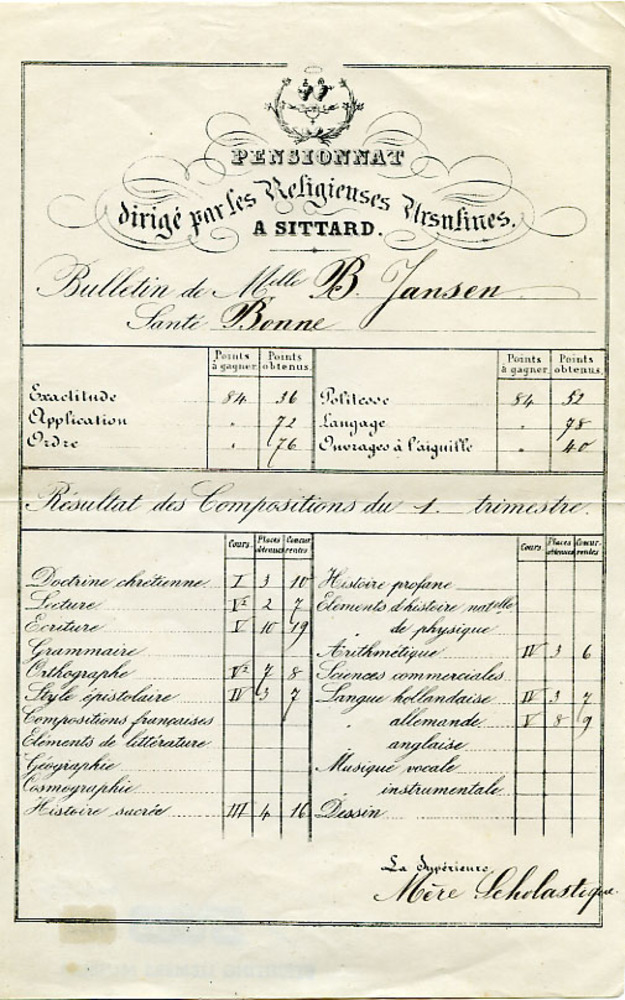 PENSIONNAT
dirigé par les Religieuses Ursulines.
A SITTARD.
Bulletin de Melle B. Jansen
Santé Bonne
Points à gagner. Points obtenus. Points à gagner. Points obtenus.
Exactitude 84 36 Politesse 84 52
Application " 72 Langage " 78
Ordre " 76 Ouvrages à l'aiguille " 40
Résultat des Compositions du 1. trimestre.
Cours. Places obtenues Concurrentes Cours. Places obtenues Concurrentes
Doctrine chrétienne I 3 10 Histoire profane
Lecture V² 2 7 Eléments d'histoire natelle
Ecriture V 10 19 " de physique
Grammaire Arithmétique IV 3 6
Orthographe V² 7 8 Sciences commerciales
Style épistolaire IV 3 7 Langue hollandaise IV 3 7
Compositions françaises " allemande V 8 9
Eléments de littérature anglaise
Géographie Musique vocale
Cosmographie instrumentale
Histoire sacrée III 4 16 Dessin
La Supérieure,
Mère Scholastique.